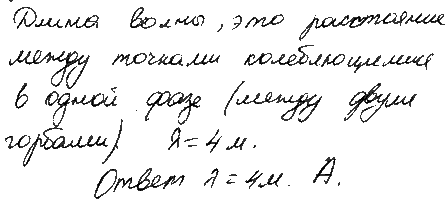 Длина волны, это расстояние
между точками колеблющимися
в одной фазе (между двумя
горбами) λ = 4 м.
Ответ λ = 4 м. А.